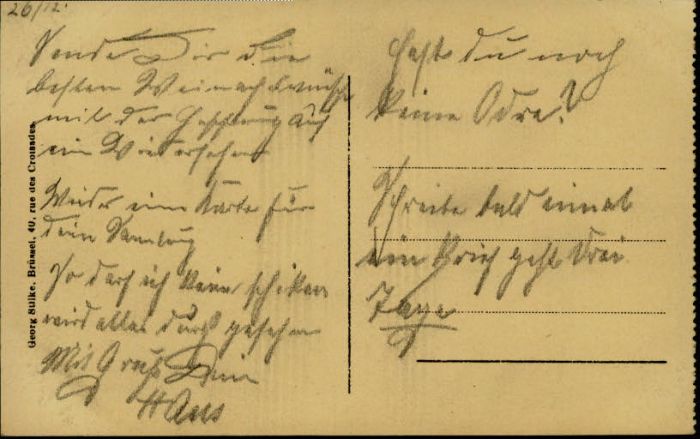 26/12.
Sende Dir die
besten Weinachtswünsche
mit der Hoffnung auf
ein Wiedersehen
Wieder eine Karte für
dein Samlug
So darf ich keine schiken
wird alles durch gesehen
Mit Gruß Dein
Hans
Hast du noch
keine Odre?
Schreibe bald einmal
ein Brief geht drei
Tage
Georg Stilke, Brüssel, 40, rue des Croisades